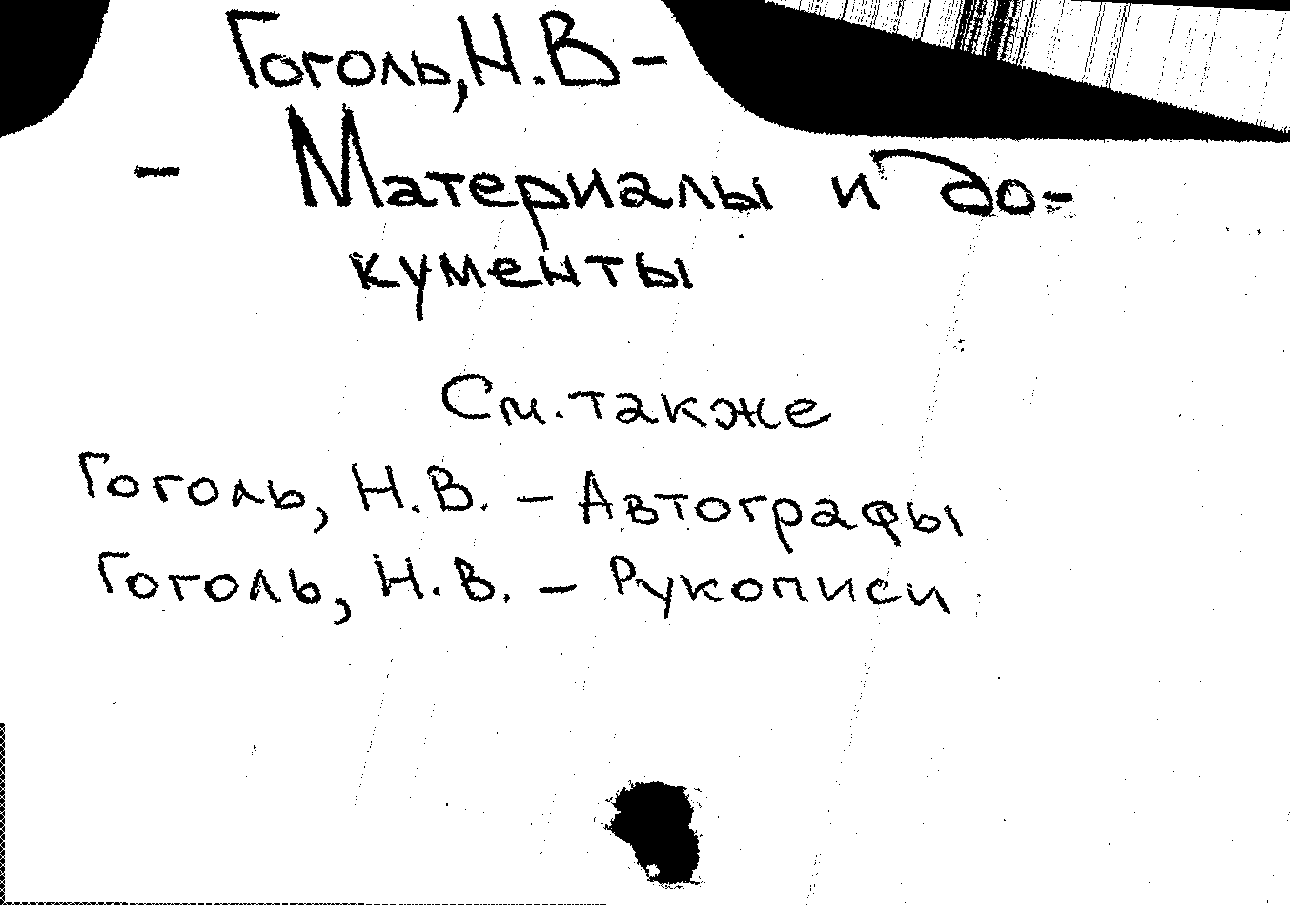 Гоголь, Н.В -
- Материалы и до-
кументы
См. также
Гоголь, Н.В. - Автографы
Гоголь, Н.В. - Рукописи